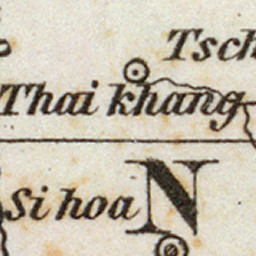 Tsch
Thai khang
Si hoa N